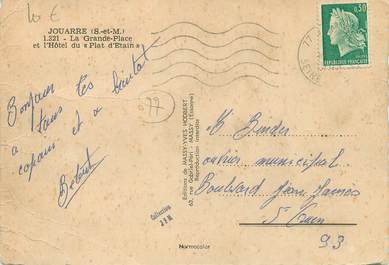 10 €
JOUARRE (S.-et-M.)
1.321 - La Grande-Place
et l'Hôtel du « Plat d'Etain »
0,30
REPUBLIQUE FRANÇAISE
77
SEINE
77
Bonjour
à tous les
copains et a
M. Binder
ouvrier municipal
Boulevard Jean Jaurès
St Ouen
93
Editions de MASSY-YVES HODBERT
63, rue Gabriel-Péri - MASSY (Essonne)
Reproduction interdite
Collection
Normacolor